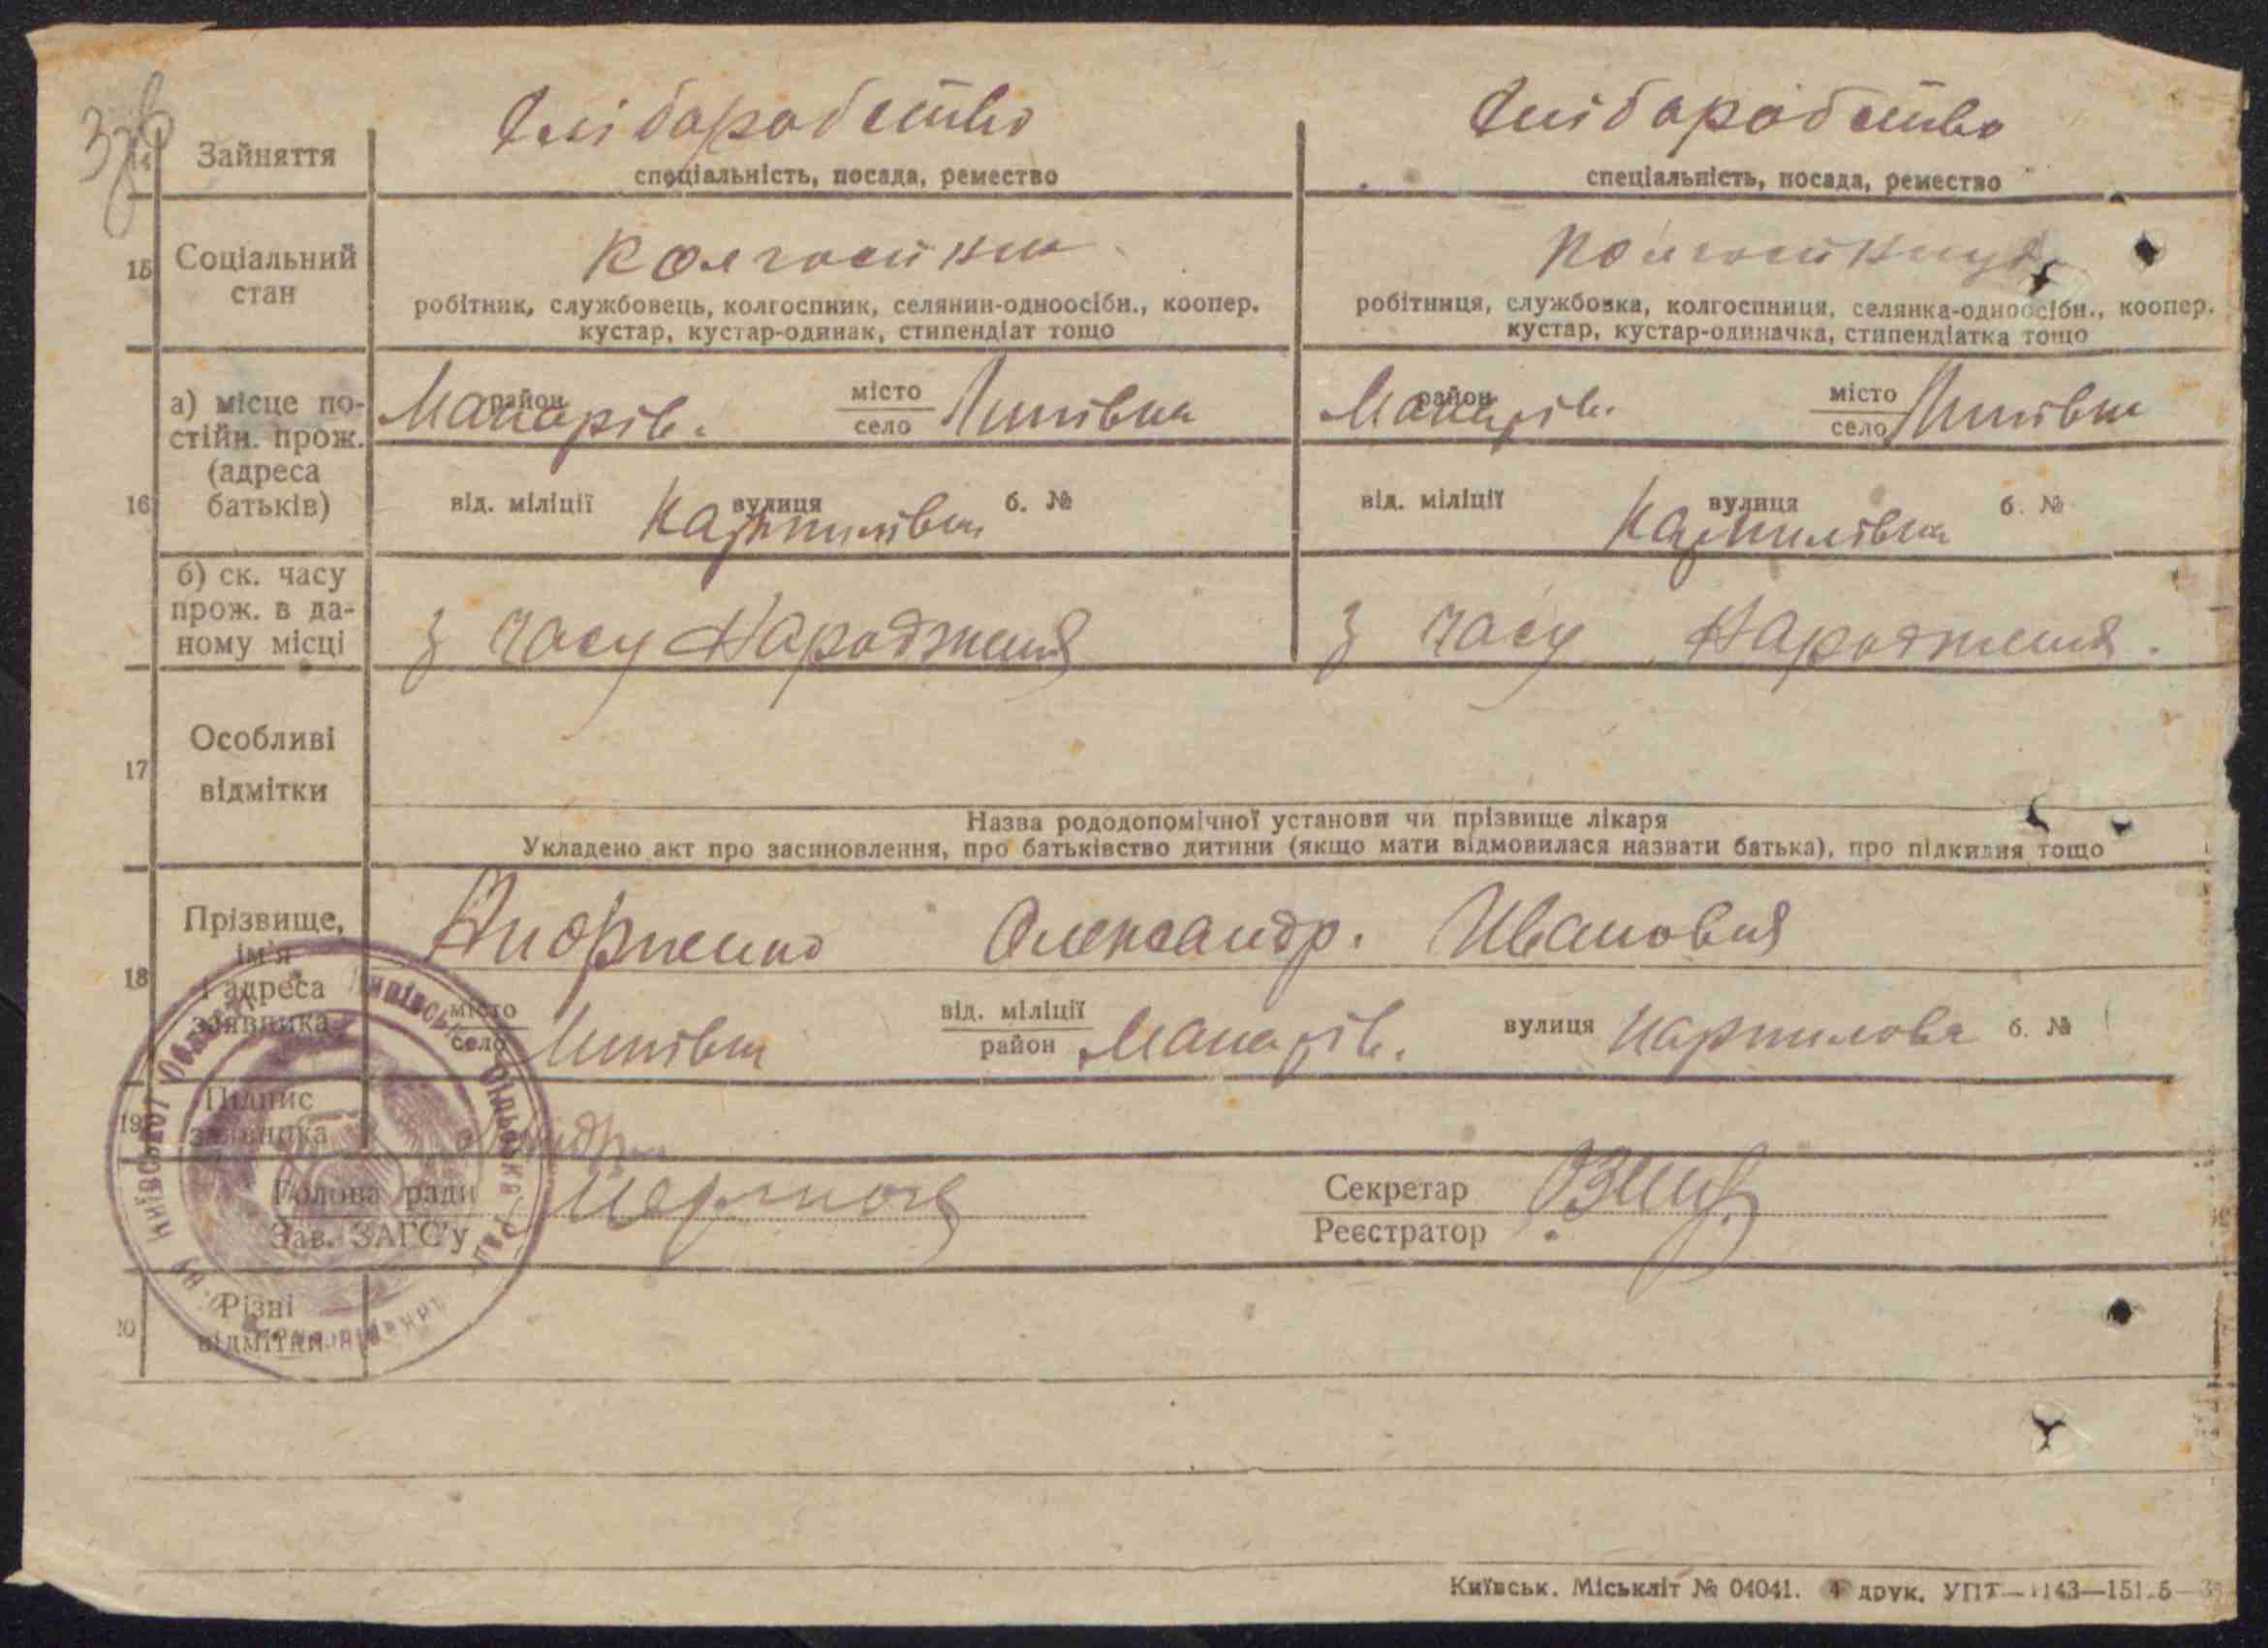 376
14 Зайняття
Хлібаробство Хлібаробство
спеціальність, посада, ремество спеціальність, посада, ремество
15 Соціальний стан
колгоспник колгоспниця
робітник, службовець, колгоспник, селянин-одноосібн., коопер. кустар, кустар-одинак, стипендіат тощо
робітниця, службовка, колгоспниця, селянка-одноосібн., коопер. кустар, кустар-одиначка, стипендіатка тощо
16 а) місце постійн. прож. (адреса батьків)
Макарів. район місто село Липівка
Макарів. район місто село Липівка
від. міліції вулиця Карпилівка б. №
від. міліції вулиця Карпилівка б. №
б) ск. часу прож. в даному місці
з часу Народження з часу Народження.
17 Особливі відмітки
Назва рододопомічної установи чи прізвище лікаря
Укладено акт про засиновлення, про батьківство дитини (якщо мати відмовилася назвати батька), про підкидня тощо
18 Прізвище, ім'я і адреса заявника
Андрієнко Олександр. Ивановия
місто село Липівка від. міліції район Макарів. вулиця Карпилова б. №
19 Підпис заявника
Голова ради
Зав. ЗАГС'у
Секретар
Реєстратор
20 Різні відмітки
Київськ. Міськліт № 04041. 4 друк. УПТ—1143—151.5